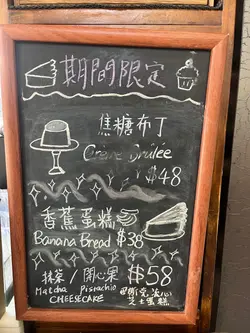 期間限定
焦糖布丁
Crème Brûlée
$48
香蕉蛋糕
Banana Bread $38
抹茶 / 開心果 $58
Matcha Pistachio
CHEESECAKE
巴斯克流心
芝士蛋糕